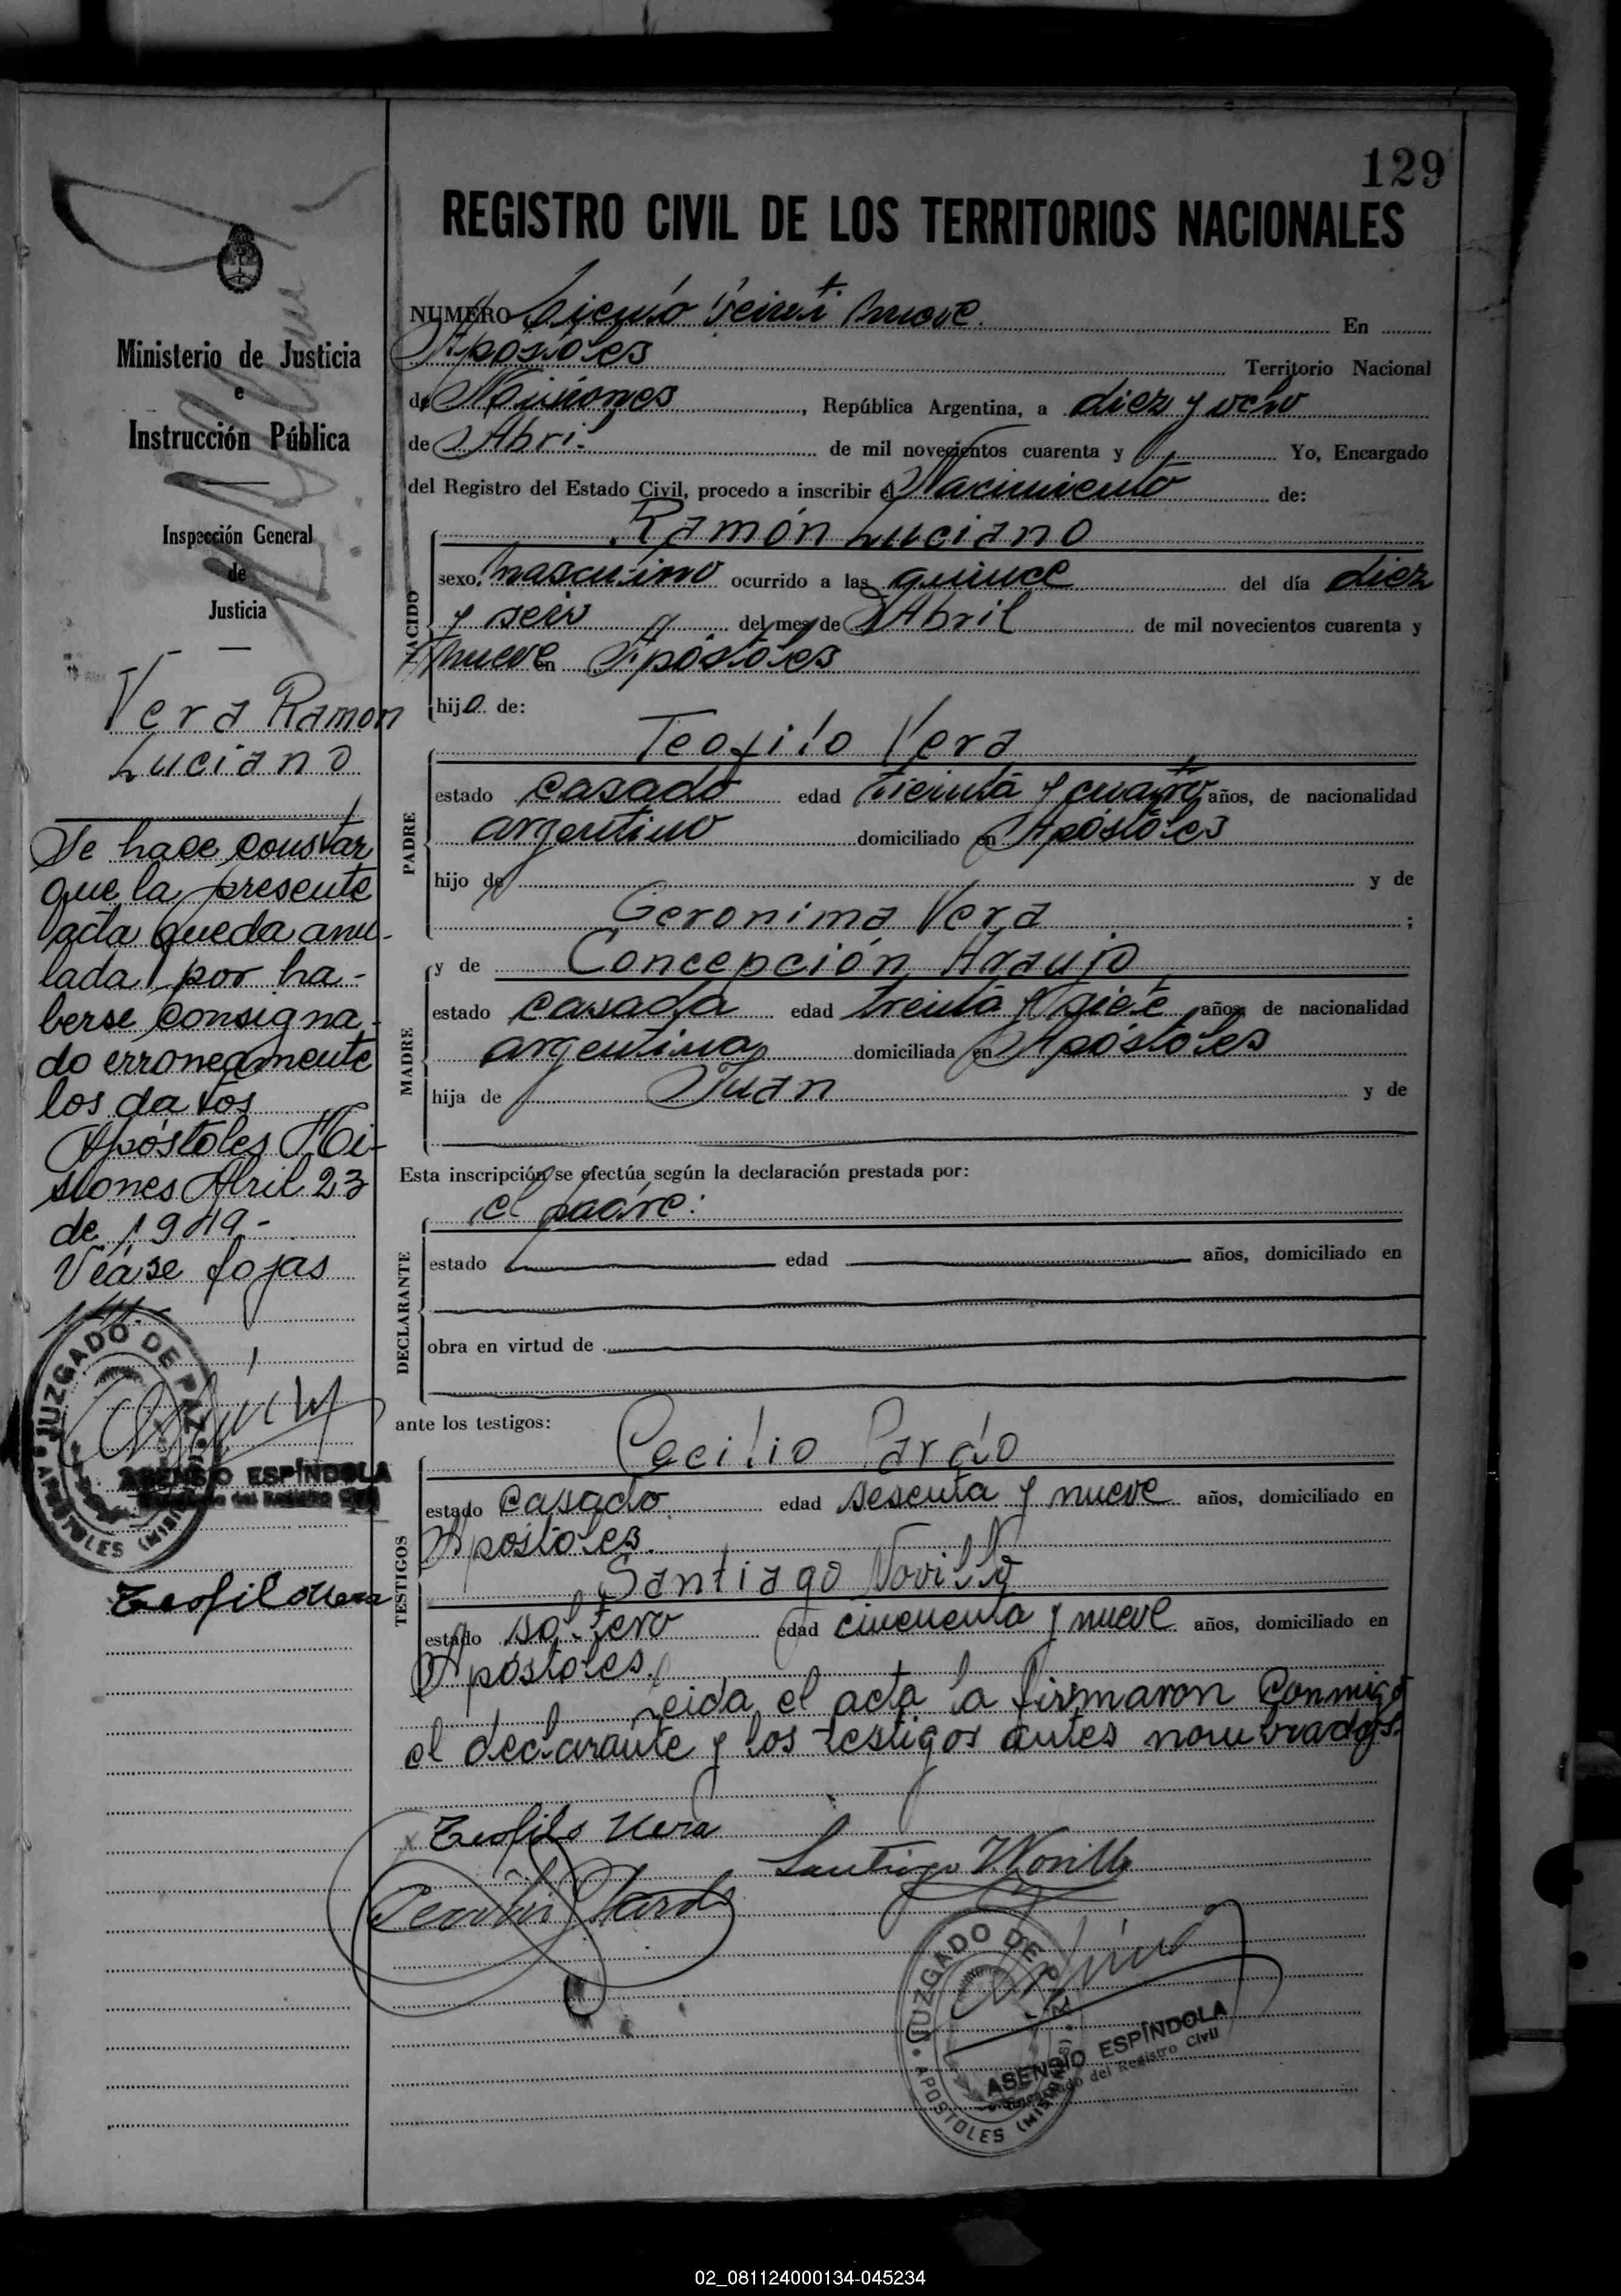 129
REGISTRO CIVIL DE LOS TERRITORIOS NACIONALES
Ministerio de Justicia
e
Instrucción Pública
Inspección General
de
Justicia
Vera Ramon
Luciano
Se hace constar
que la presente
acta queda anu-
lada por ha-
berse consigna-
do erroneamente
los datos
Apóstoles Mi-
siones Abril 23
de 1949-
Véase fojas
JUZGADO DE PAZ
APOSTOLES (MISIONES)
ASENSIO ESPÍNDOLA
Encargado del Registro Civil
Teofilo Vera
NUMERO Ciento Veinti nueve. En
Apóstoles Territorio Nacional
de Misiones, República Argentina, a diez y ocho
de Abril de mil novecientos cuarenta y Yo, Encargado
del Registro del Estado Civil, procedo a inscribir el Nacimiento de:
Ramón Luciano
NACIDO
sexo masculino ocurrido a las quince del día diez
y seis del mes de Abril de mil novecientos cuarenta y
nueve en Apóstoles
hijo de:
Teofilo Vera
PADRE
estado casado edad treinta y cuatro años, de nacionalidad
argentino domiciliado en Apóstoles
hijo de y de
Geronima Vera ;
y de Concepción Araujo
MADRE
estado casada edad treinta y siete años, de nacionalidad
argentina domiciliada en Apóstoles
hija de Juan y de
Esta inscripción se efectúa según la declaración prestada por:
el padre:
DECLARANTE
estado edad años, domiciliado en
obra en virtud de
ante los testigos:
Cecilio Pardo
TESTIGOS
estado casado edad sesenta y nueve años, domiciliado en
Apóstoles.
Santiago Novilla
estado soltero edad cincuenta y nueve años, domiciliado en
Apóstoles.
Leida el acta la firmaron conmigo
el declarante y los testigos antes nombrados.
Teofilo Vera
Santiago Novilla
Cecilio Pardo
JUZGADO DE PAZ
APOSTOLES (MISIONES)
ASENSIO ESPÍNDOLA
Encargado del Registro Civil
02_081124000134-045234